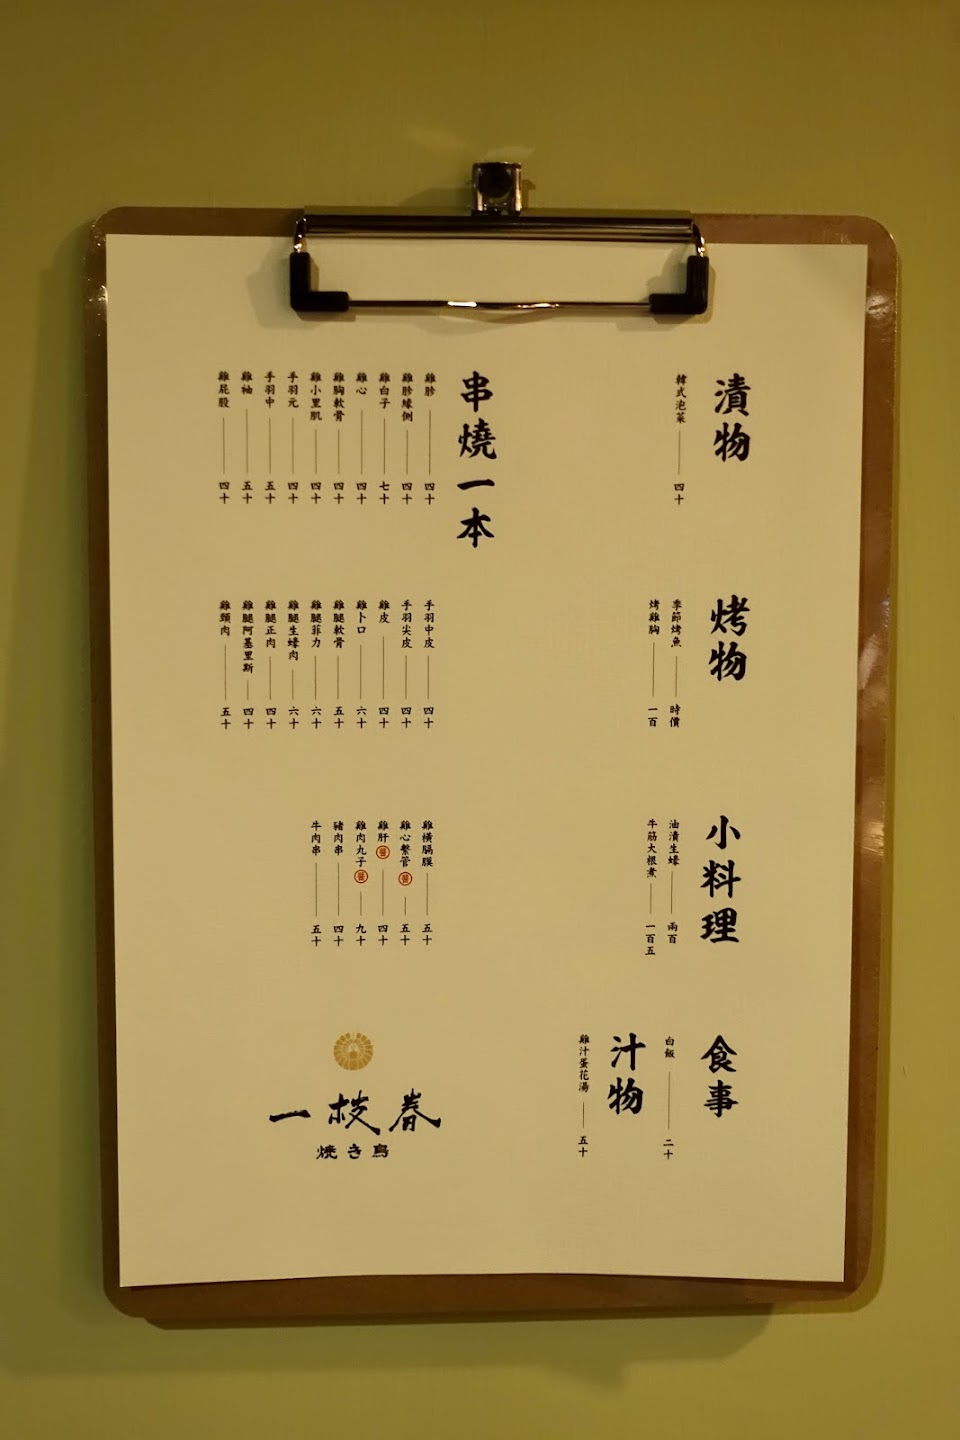 漬物
韓式泡菜 四十
烤物
季節烤魚 時價
烤雞胸 一百
小料理
油漬生蠔 兩百
牛筋大根煮 一百五
食事
白飯 二十
汁物
雞汁蛋花湯 五十
串燒一本
雞胗 四十
雞胗緣側 四十
雞白子 七十
雞心 四十
雞胸軟骨 四十
雞小里肌 四十
手羽元 四十
手羽中 五十
雞袖 五十
雞屁股 四十
手羽中皮 四十
手羽尖皮 四十
雞皮 四十
雞卜口 六十
雞腿軟骨 五十
雞腿菲力 六十
雞腿生蠔肉 六十
雞腿正肉 四十
雞腿阿基里斯 四十
雞頸肉 五十
雞橫膈膜 五十
雞心繫管 五十
雞肝 四十
雞肉丸子 九十
豬肉串 四十
牛肉串 五十
一枝春
焼き鳥